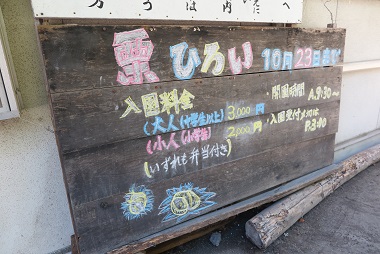 栗ひろい 10月23日まで
入園料金
(大人(中学生以上) 3,000円
(小人(小学生) 2,000円
(いずれも弁当付き)
・開園時間
A.9:30〜
・入園受付〆切は
P.3:00